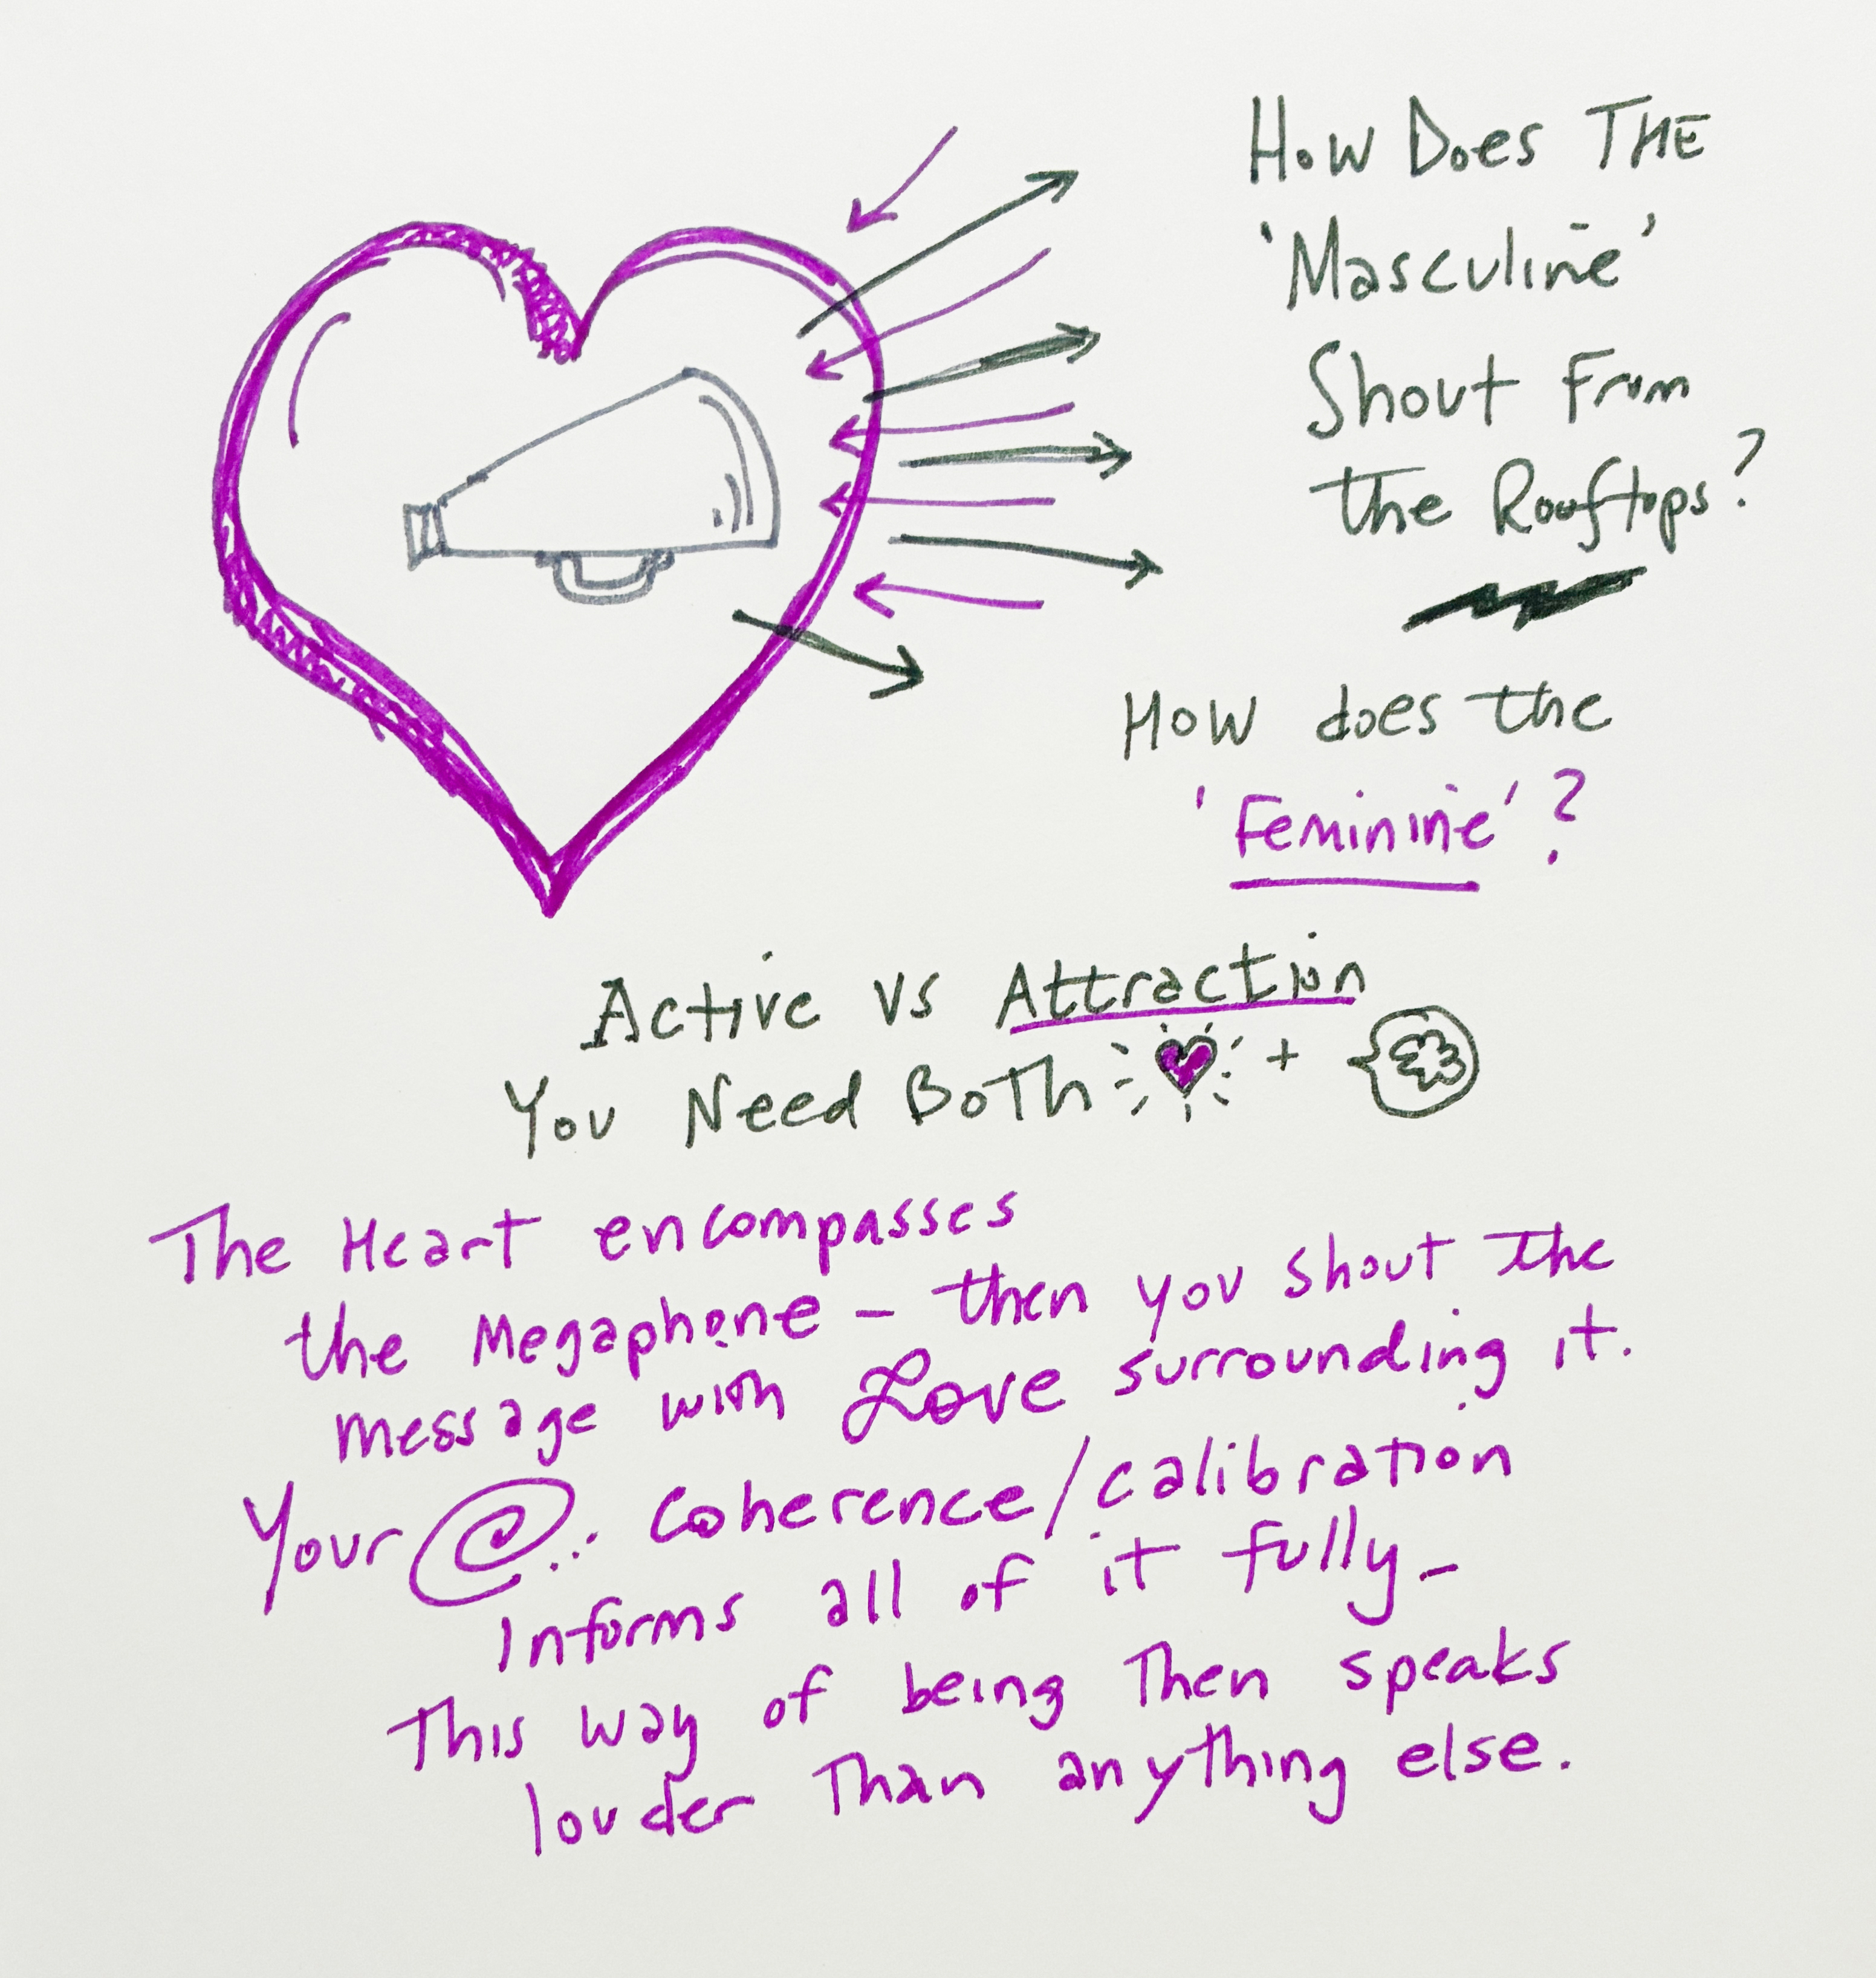 How Does THE
'Masculine'
Shout From
the Rooftops?
How does the
'Feminine'?
Active vs Attraction
You Need Both +
The Heart encompasses
the Megaphone – then you shout the
message with Love surrounding it.
Your ... Coherence/calibration
Informs all of it fully –
This way of being Then speaks
louder Than anything else.